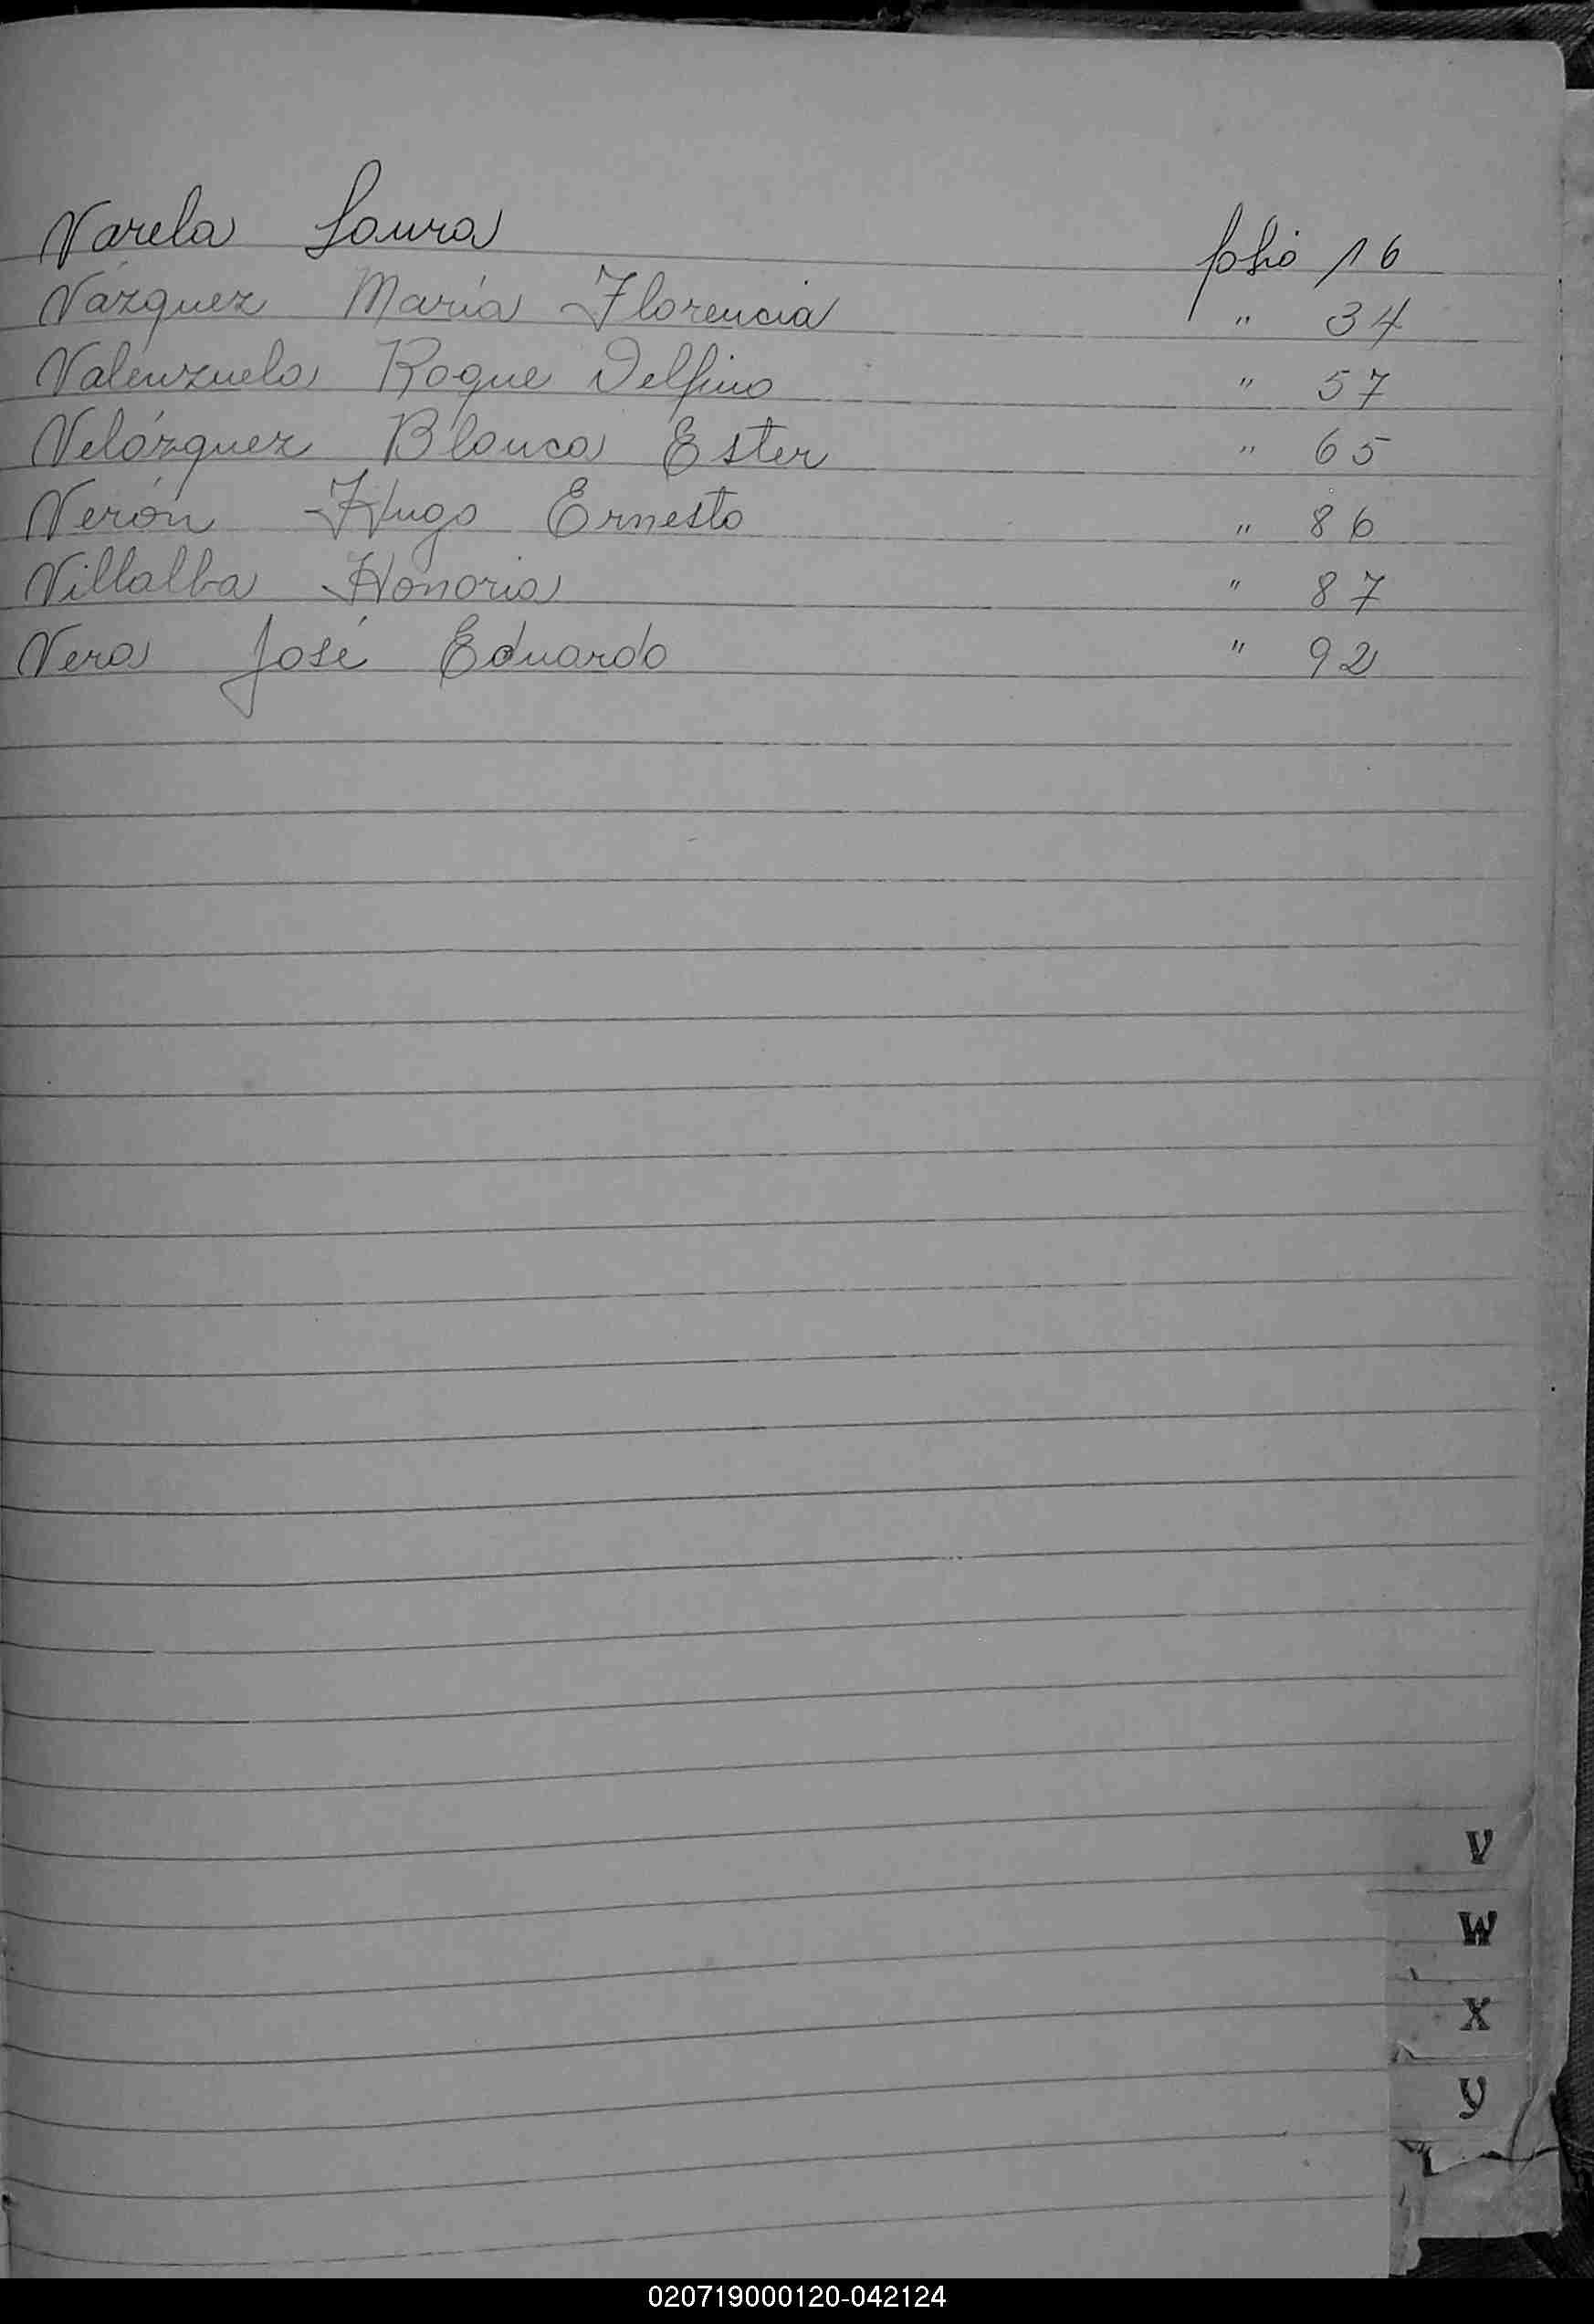 Varela Laura folio 16
Vázquez María Florencia " 34
Valenzuela Roque Delfino " 57
Velázquez Blanca Ester " 65
Verón Hugo Ernesto " 86
Villalba Honoria " 87
Vera José Eduardo " 92
V
W
X
Y
020719000120-042124